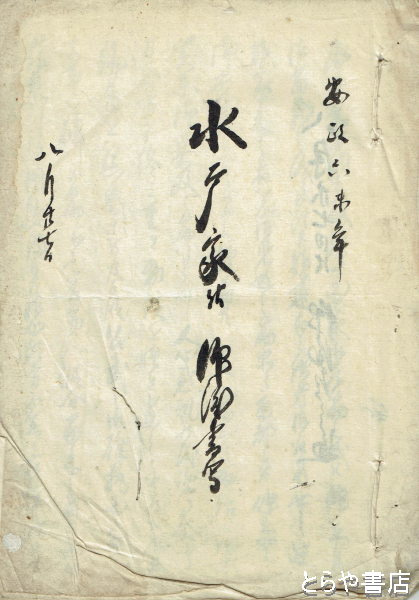 安政六未年
水戸家江御達書写
八月廿七日
とらや書店